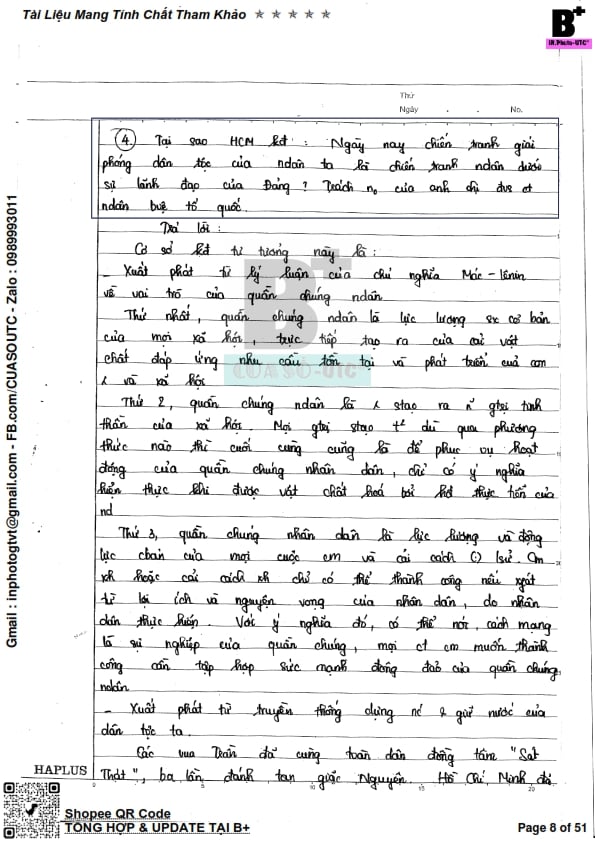 Tài Liệu Mang Tính Chất Tham Khảo ★ ★ ★ ★ ★
B+
IN.Photo-UTC
Thứ
Ngày . . No.
4. Tại sao HCM kđ : Ngày nay chiến tranh giải
phóng dân tộc của ndân ta là chiến tranh ndân dưới
sự lãnh đạo của Đảng? Trách no của anh chị đvs ct
ndân bvệ tổ quốc.
Trả lời :
Cơ sở kđ tư tưởng này là :
- Xuất phát từ lý luận của chủ nghĩa Mác - lênin
về vai trò của quần chúng ndân
Thứ nhất, quần chúng ndân là lực lượng sx cơ bản
của mọi xã hội, trực tiếp tạo ra của cải vật
chất đáp ứng nhu cầu tồn tại và phát triển của con
và xã hội
Thứ 2, quần chúng ndân là stạo ra gtrị tinh
thần của xã hội. Mọi gtrị stạo t2 dù qua phương
thức nào thì cuối cùng cũng là để phục vụ hoạt
động của quần chúng nhân dân, chỉ có ý nghĩa
hiện thực khi được vật chất hoá bởi hđ thực tiễn của
nd
Thứ 3, quần chúng nhân dân là lực lượng và động
lực cbản của mọi cuộc cm và cải cách (-) lsử. Cm
xh hoặc cải cách xh chỉ có thể thành công nếu xphát
từ lợi ích và nguyện vọng của nhân dân, do nhân
dân thực hiện. Với ý nghĩa đó, có thể nói, cách mạng
là sự nghiệp của quần chúng, mọi ct cm muốn thành
công cần tập hợp sức mạnh đông đảo của quần chúng
ndân.
- Xuất phát từ truyền thống dựng nc & giữ nước của
dân tộc ta.
Các vua Trần đã cùng toàn dân đồng tâm "Sát
Thát", ba lần đánh tan giặc Nguyên. Hồ Chí Minh đã
B+
CUASO-UTC
Gmail : inphotogtvt@gmail.com - FB.com/CUASOUTC - Zalo : 0989993011
HAPLUS
0 5 10 15 20
Shopee QR Code
TỔNG HỢP & UPDATE TẠI B+
Page 8 of 51